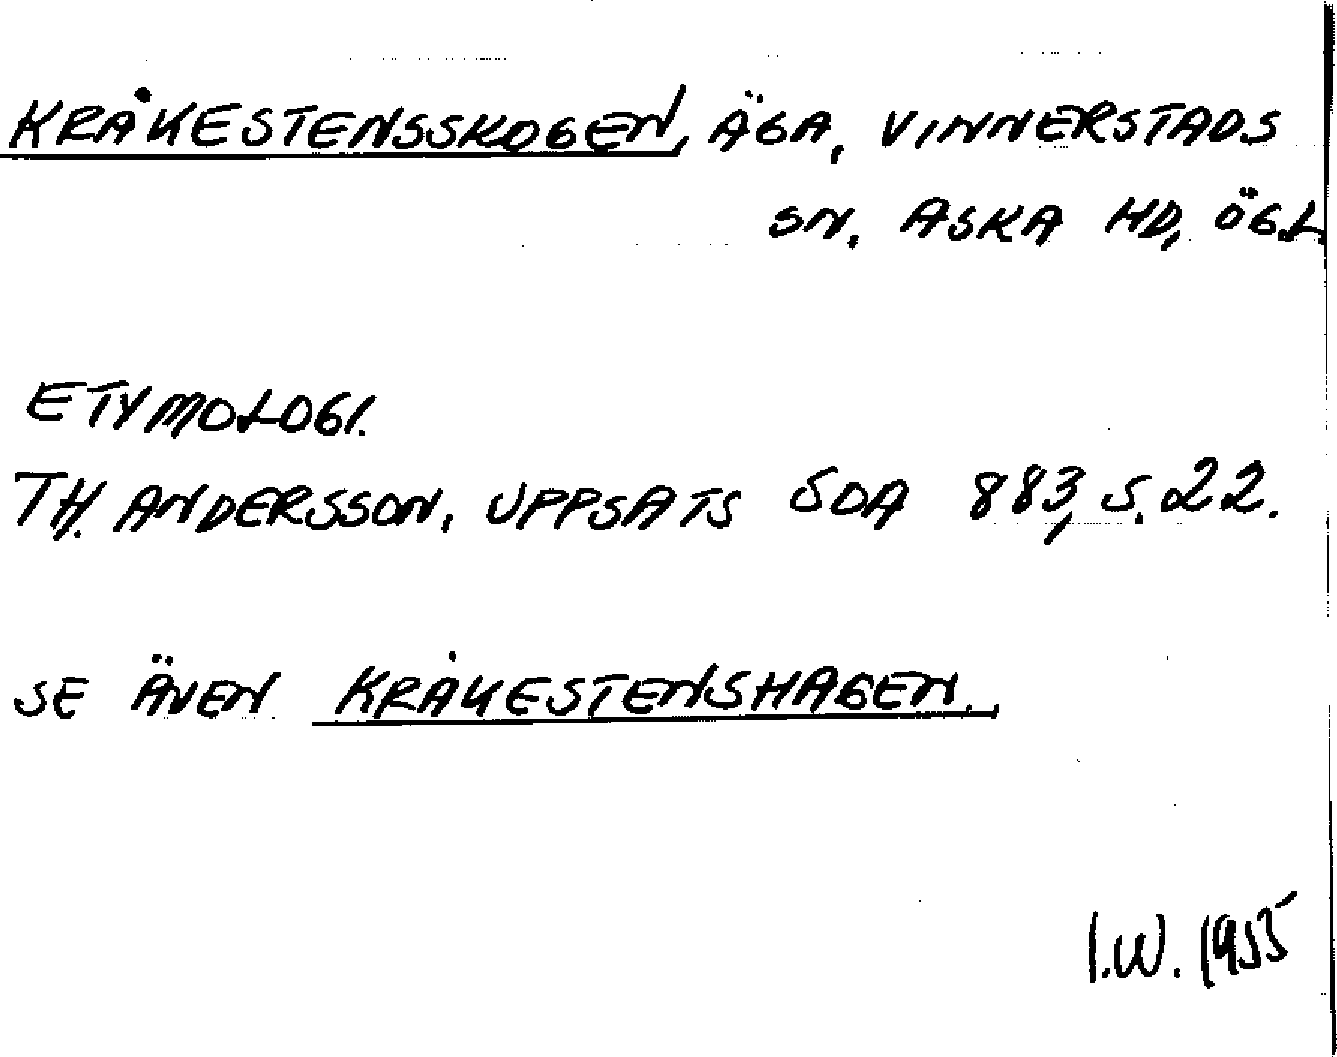 KRÅKESTENSSKOGEN, ÄGA, VINNERSTADS
SN. ASKA HD, ÖGL.
ETYMOLOGI.
TH. ANDERSSON, UPPSATS SOA 883, S. 22.
SE ÄVEN KRÅKESTENSHAGEN.
I.W. 1955